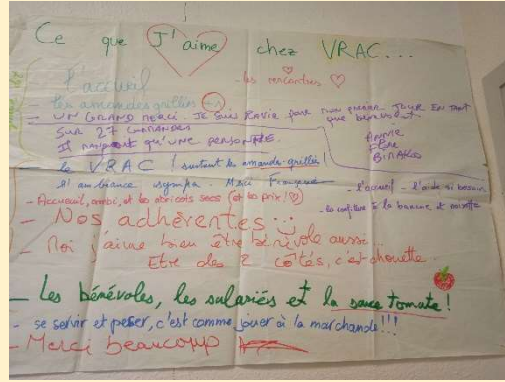 Ce que J'aime chez VRAC...
l'accueil
- les rencontres
- les amandes grillées
- UN GRAND MERCI. Je suis Ravie pour mon premier JOUR EN TANT
que bénévolat
SUR 27 COMMANDES
IL manquait qu'une PERSONNE.
ANNIE
BINAKO
le VRAC ! surtout les amandes grillées !
l'ambiance sympa. Merci
- l'accueil - l'aide si besoin
- Accueil, ambi, et les abricots secs (et le prix!)
- la confiture à la banane et noisette
- Nos adhérentes
- Moi j'aime bien être bénévole aussi
Etre des 2 côtés, c'est chouette.
- Les bénévoles, les salariés et la sauce tomate !
- se servir et peser, c'est comme jouer à la marchande !!!
- Merci beaucoup